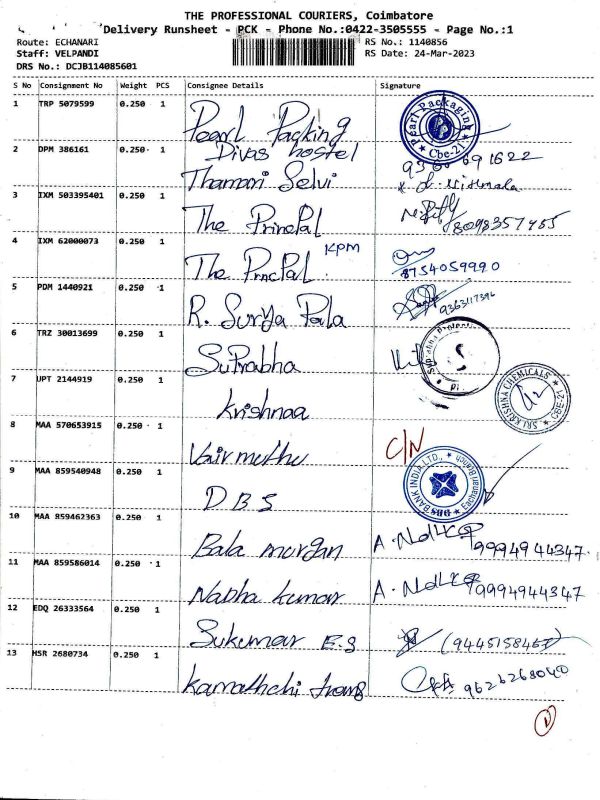 THE PROFESSIONAL COURIERS, Coimbatore
Delivery Runsheet - PCK - Phone No.:0422-3505555 - Page No.:1
Route: ECHANARI RS No.: 1140856
Staff: VELPANDI RS Date: 24-Mar-2023
DRS No.: DCJB114085601
S No Consignment No Weight PCS Consignee Details Signature
1 TRP 5079599 0.250 1 Pearl Packing
Pearl Packaging Cbe-21
2 DPM 386161 0.250 1 Divas hostel
Thamari Selvi
3 IXM 503395401 0.250 1 The PrinciPal 8098357455
4 IXM 62000073 0.250 1 The PrncPal KPM 8754059990
5 PDM 1440921 0.250 1 R. Surya Pala 9363117396
6 TRZ 30013699 0.250 1 SuPrabha
7 UPT 2144919 0.250 1 Krishnaa
SRI KRISHNA CHEMICALS CBE-21
8 MAA 570653915 0.250 1 Vair muthu C/N
9 MAA 859540948 0.250 1 DBS
DBS BANK INDIA LTD., Eachanari Branch
10 MAA 859462363 0.250 1 Bala morgan 9994944347
11 MAA 859586014 0.250 1 Nabha kumar 9994944347
12 EDQ 26333564 0.250 1 Sukumar E.S
13 HSR 2680734 0.250 1 9626268040